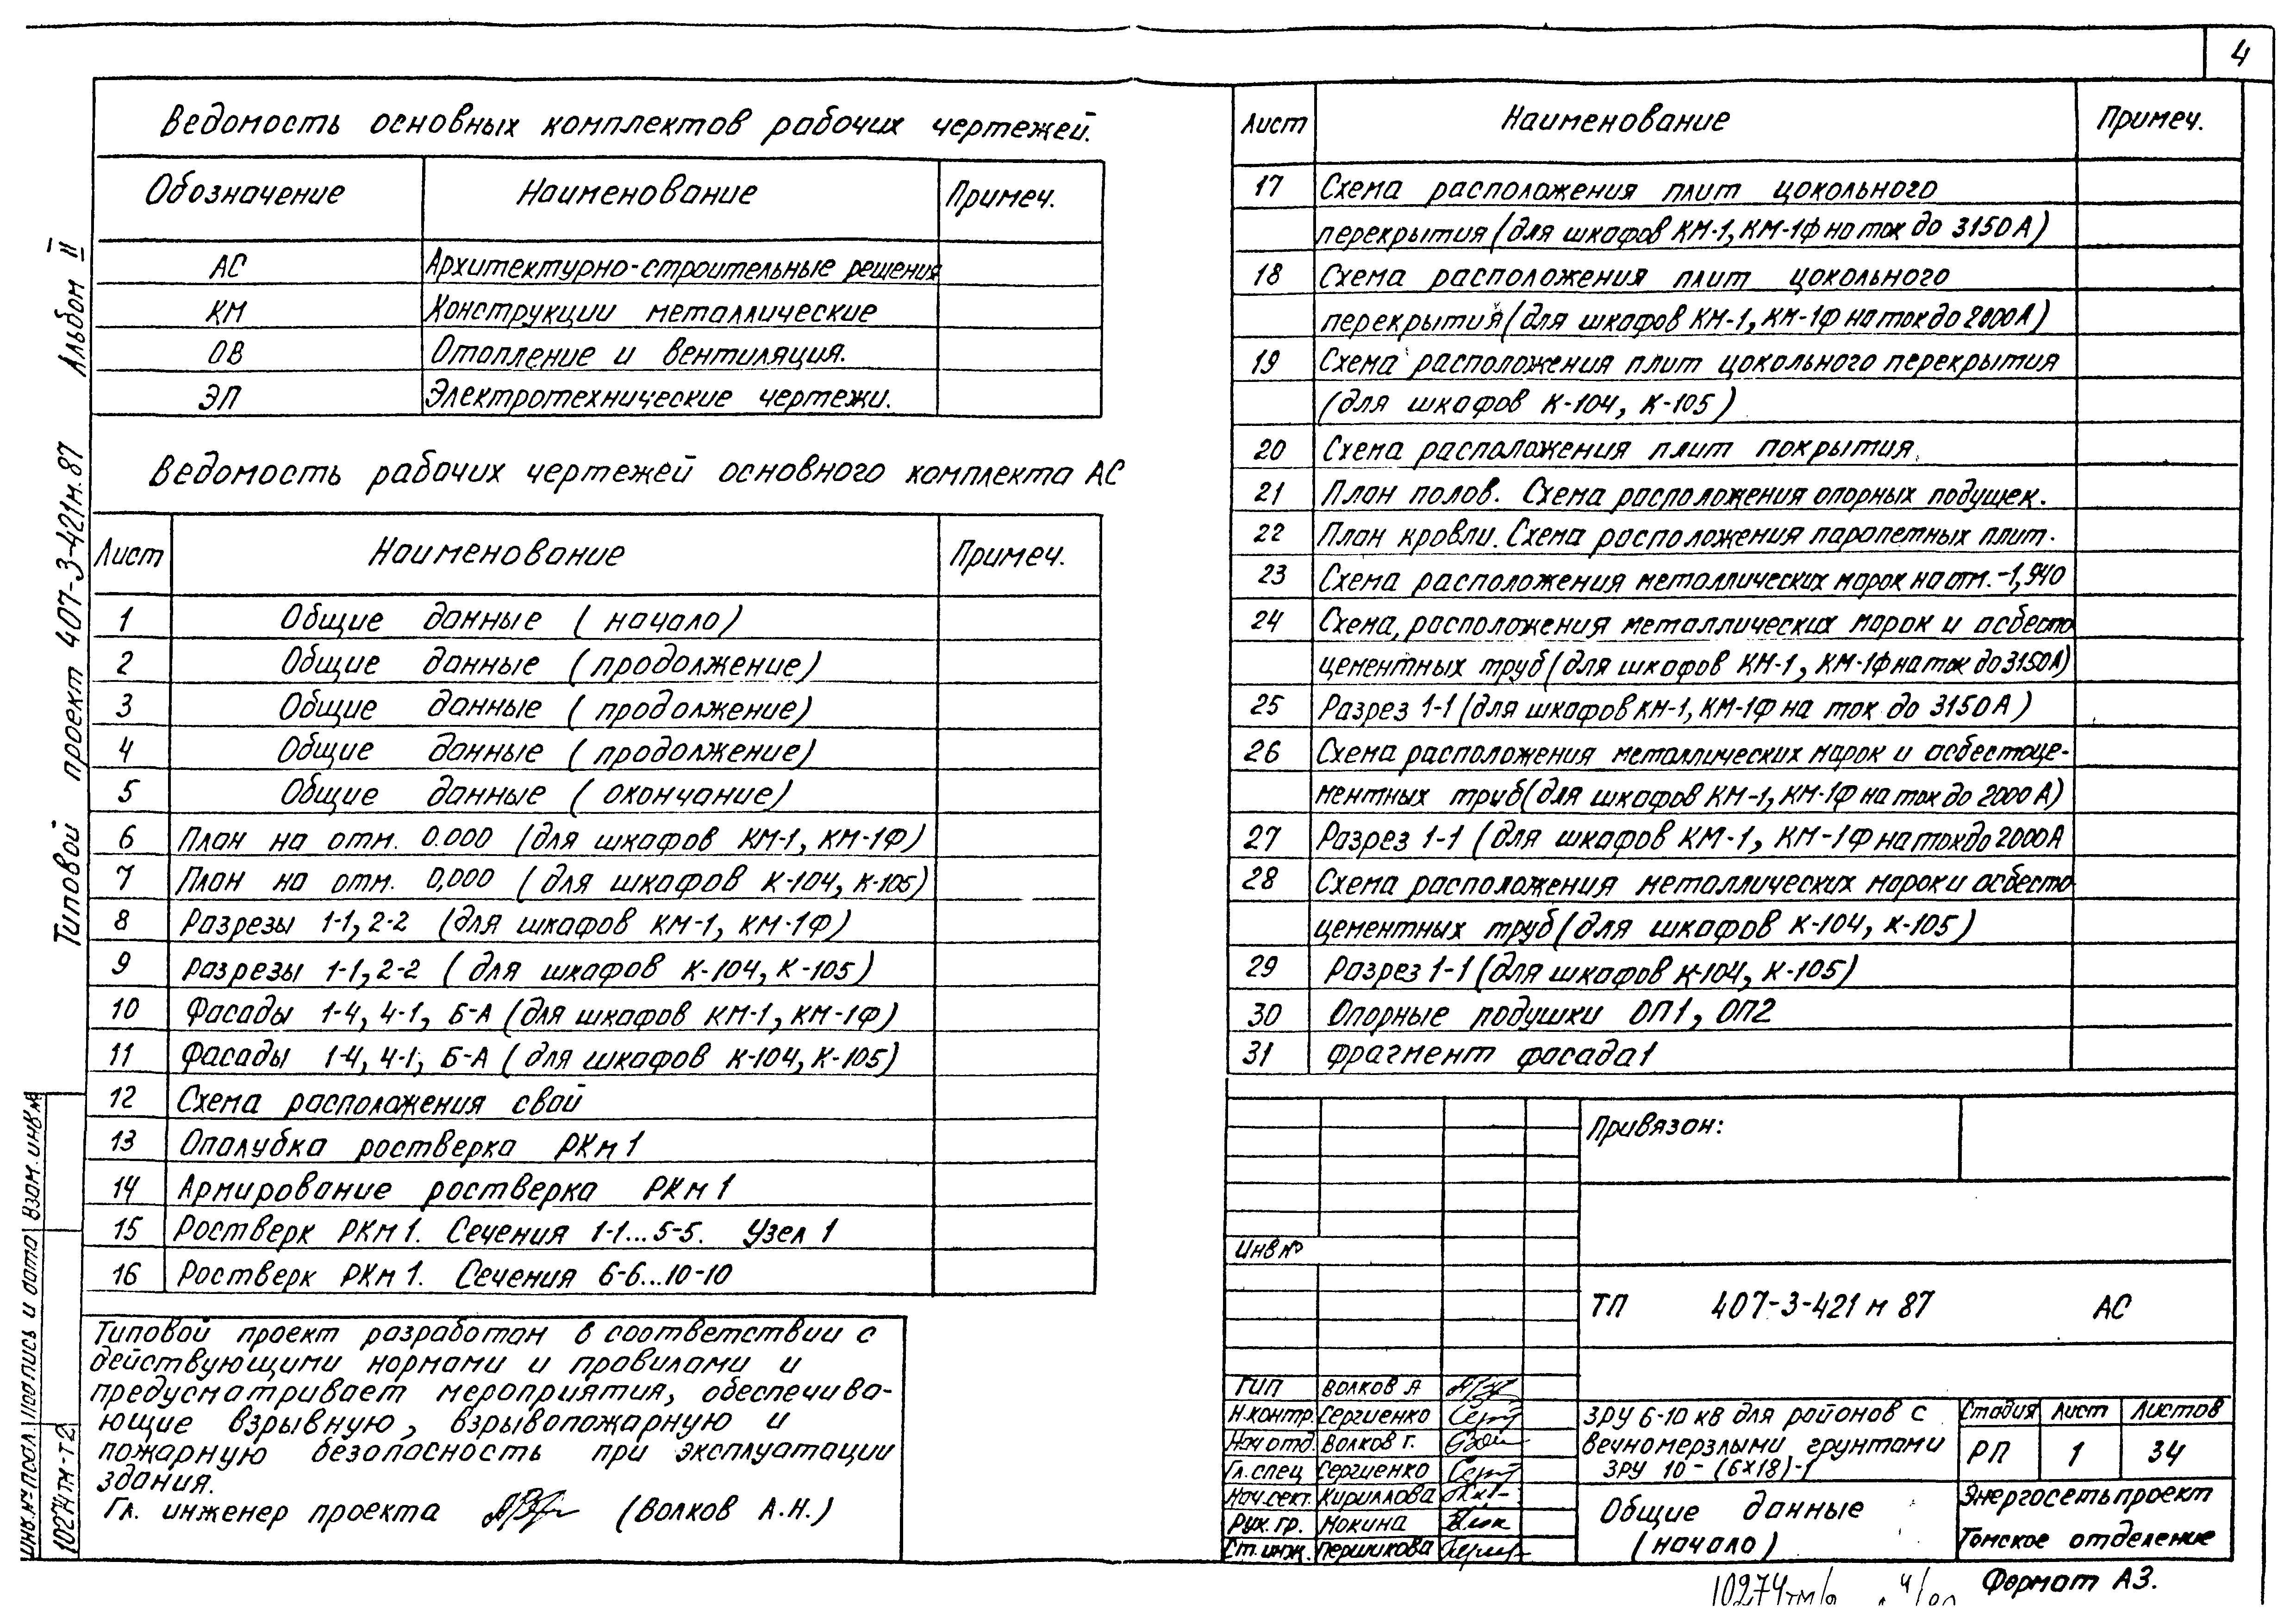 4
Ведомость основных комплектов рабочих чертежей.
Обозначение Наименование Примеч.
АС Архитектурно-строительные решения
КМ Конструкции металлические
ОВ Отопление и вентиляция.
ЭП Электротехнические чертежи.
Ведомость рабочих чертежей основного комплекта АС
Лист Наименование Примеч.
1 Общие данные (начало)
2 Общие данные (продолжение)
3 Общие данные (продолжение)
4 Общие данные (продолжение)
5 Общие данные (окончание)
6 План на отм. 0.000 (для шкафов КМ-1, КМ-1Ф)
7 План на отм. 0,000 (для шкафов К-104, К-105)
8 Разрезы 1-1, 2-2 (для шкафов КМ-1, КМ-1Ф)
9 Разрезы 1-1, 2-2 (для шкафов К-104, К-105)
10 Фасады 1-4, 4-1, Б-А (для шкафов КМ-1, КМ-1Ф)
11 Фасады 1-4, 4-1, Б-А (для шкафов К-104, К-105)
12 Схема расположения свай
13 Опалубка ростверка РКм1
14 Армирование ростверка РКм1
15 Ростверк РКм1. Сечения 1-1...5-5. Узел 1
16 Ростверк РКм1. Сечения 6-6...10-10
Типовой проект разработан в соответствии с
действующими нормами и правилами и
предусматривает мероприятия, обеспечива-
ющие взрывную, взрывопожарную и
пожарную безопасность при эксплуатации
здания.
Гл. инженер проекта (Волков А.Н.)
Лист Наименование Примеч.
17 Схема расположения плит цокольного
перекрытия (для шкафов КМ-1, КМ-1Ф на ток до 3150А)
18 Схема расположения плит цокольного
перекрытия (для шкафов КМ-1, КМ-1Ф на ток до 2000А)
19 Схема расположения плит цокольного перекрытия
(для шкафов К-104, К-105)
20 Схема расположения плит покрытия
21 План полов. Схема расположения опорных подушек.
22 План кровли. Схема расположения парапетных плит.
23 Схема расположения металлических марок на отм. -1,940
24 Схема расположения металлических марок и асбесто
цементных труб (для шкафов КМ-1, КМ-1Ф на ток до 3150А)
25 Разрез 1-1 (для шкафов КМ-1, КМ-1Ф на ток до 3150А)
26 Схема расположения металлических марок и асбестоце-
ментных труб (для шкафов КМ-1, КМ-1Ф на ток до 2000А)
27 Разрез 1-1 (для шкафов КМ-1, КМ-1Ф на ток до 2000А
28 Схема расположения металлических марок и асбесто
цементных труб (для шкафов К-104, К-105)
29 Разрез 1-1 (для шкафов К-104, К-105)
30 Опорные подушки ОП1, ОП2
31 Фрагмент фасада 1
Привязан:
Инв №
ТП 407-3-421м 87 АС
ГИП Волков А
Н.контр. Сергиенко
Нач отд. Волков Г.
Гл. спец Сергиенко
Нач.сект. Кириллова
Рук. гр. Мокина
Ст. инж. Першикова
ЗРУ 6-10 кв для районов с
вечномерзлыми грунтами
ЗРУ 10-(6×18)-1
Стадия Лист Листов
РП 1 34
Общие данные
(начало)
Энергосетьпроект
Томское отделение
Формат А3.
Типовой проект 407-3-421м.87 Альбом II
Инв.№ подл. Подпись и дата Взам. инв №
10274тм-т2